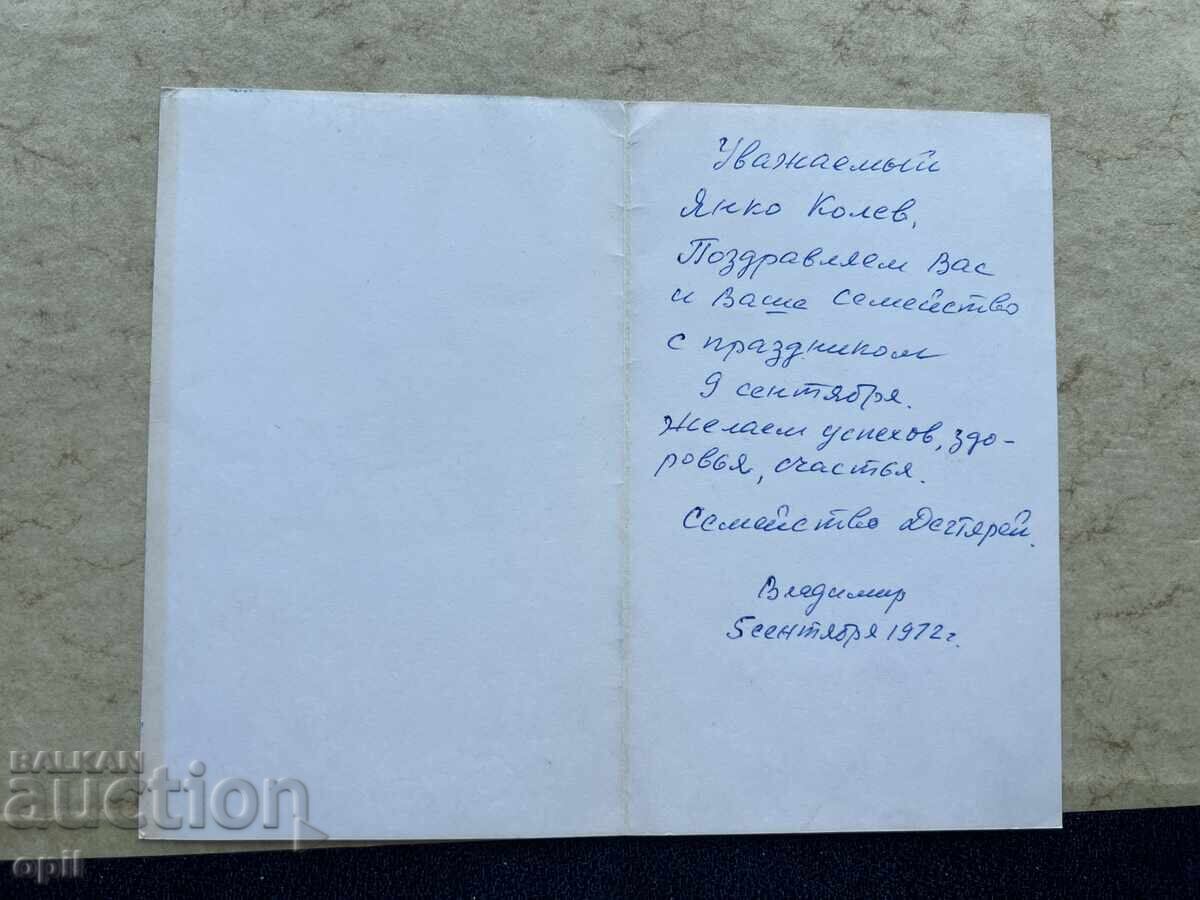 Уважаемый
Янко Колев,
Поздравляем Вас
и Ваше семейство
с праздником
9 сентября.
Желаем успехов, здо-
ровья, счастья.
Семейство Дегтярей.
Владимир
5 сентября 1972 г.
BALKAN
auction
opil